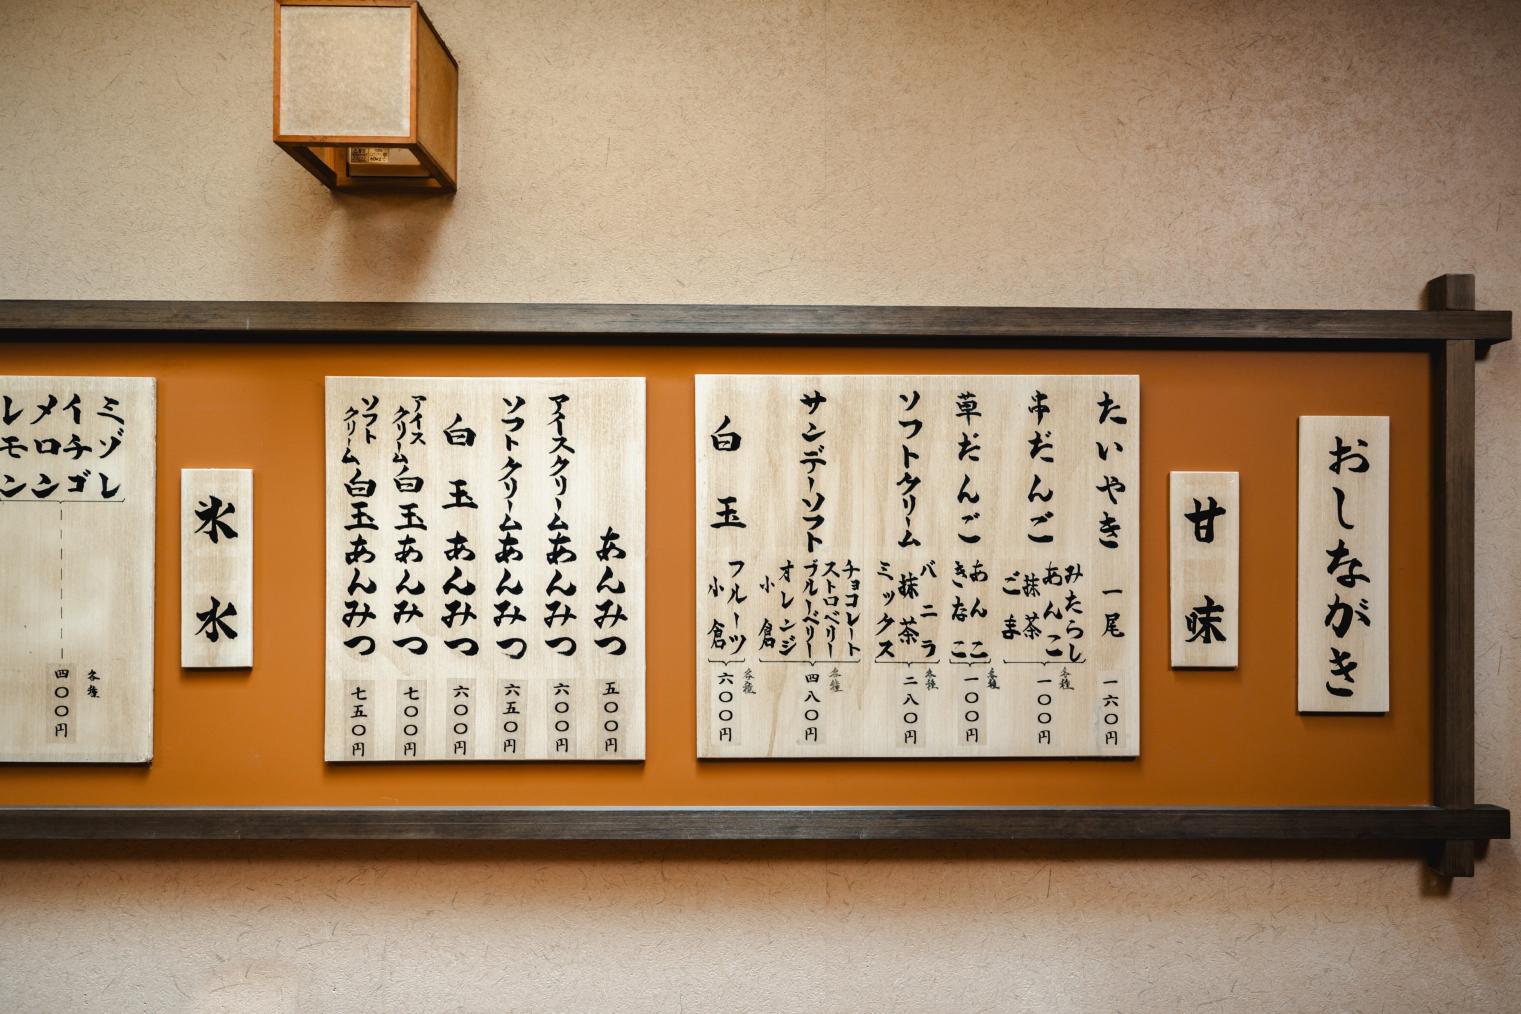 おしながき
甘味
たいやき 一尾 一六〇円
串だんご みたらし あんこ 抹茶 ごま 各種 一〇〇円
草だんご あんこ きなこ 各種 一〇〇円
ソフトクリーム バニラ 抹茶 ミックス 各種 二八〇円
サンデーソフト チョコレート ストロベリー ブルーベリー オレンジ 小倉 各種 四八〇円
白玉 フルーツ 小倉 各種 六〇〇円
あんみつ 五〇〇円
アイスクリームあんみつ 六〇〇円
ソフトクリームあんみつ 六五〇円
白玉あんみつ 六〇〇円
アイスクリーム白玉あんみつ 七〇〇円
ソフトクリーム白玉あんみつ 七五〇円
氷水
ミゾレ
イチゴ
メロン
レモン
各種 四〇〇円